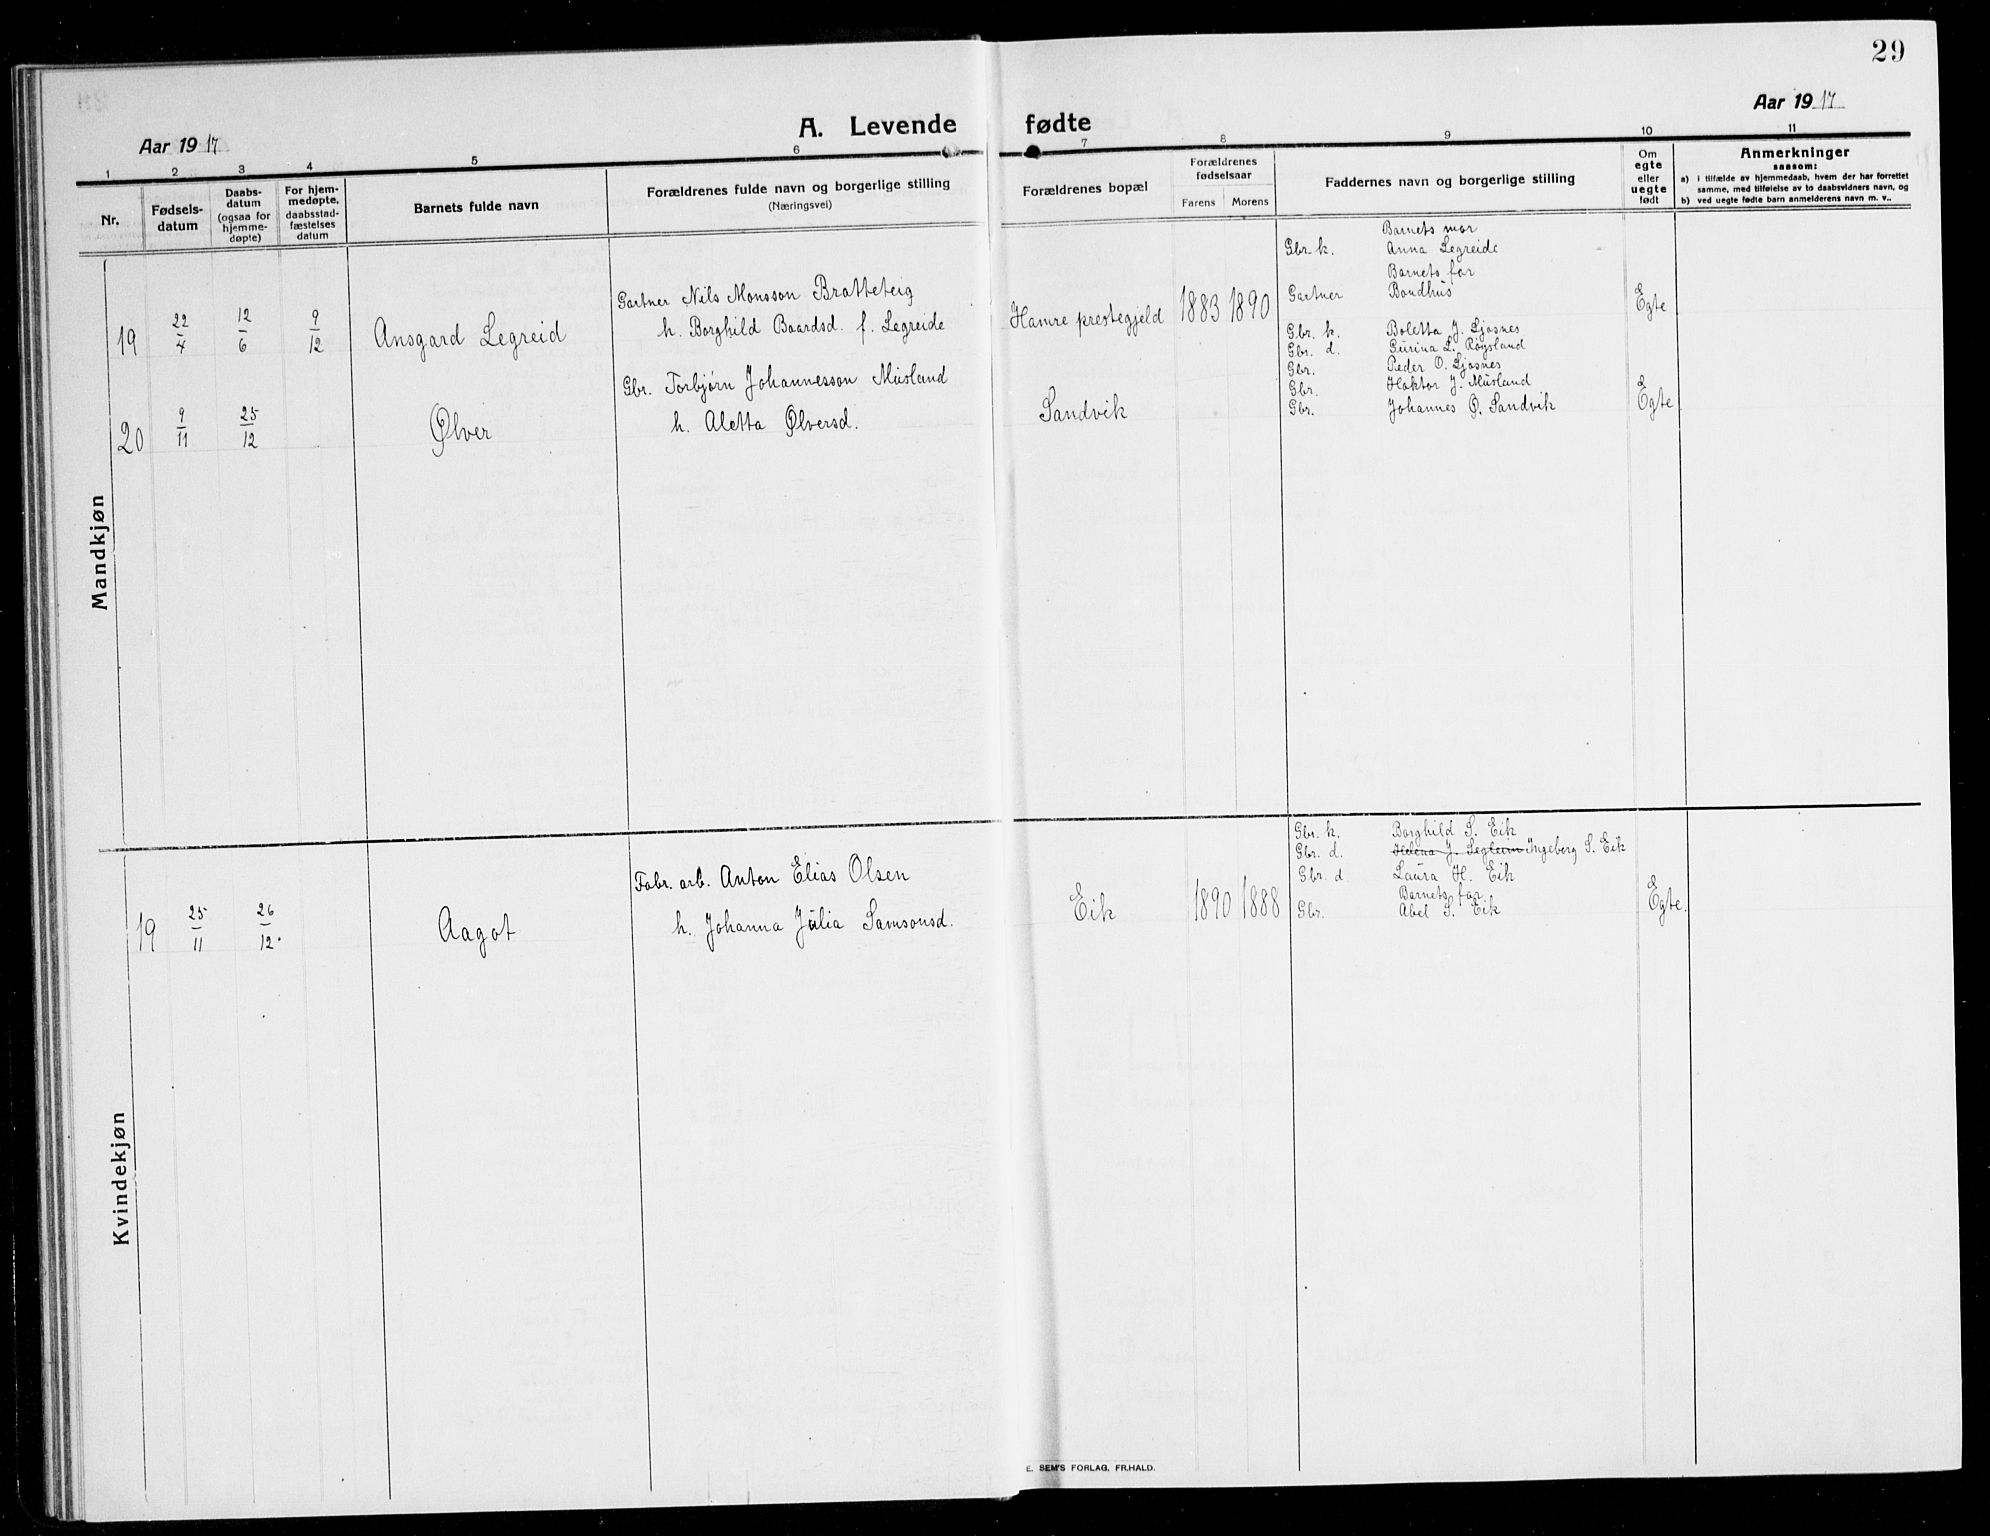 29
Aar 1917
A. Levende fødte
Aar 1917
1 2 3 4 5 6 7 8 9 10 11
Nr.
Fødselsdatum
Daabsdatum (ogsaa for hjemmedøpte)
For hjemmedøpte, daabsstadfæstelses datum
Barnets fulde navn
Forældrenes fulde navn og borgerlige stilling
(Næringsvei)
Forældrenes bopæl
Forældrenes fødselsaar
Farens Morens
Faddernes navn og borgerlige stilling
Om egte eller uegte født
Anmerkninger
saasom:
a) i tilfælde av hjemmedaab, hvem der har forrettet
samme, med tilføielse av to daabsvidners navn, og
b) ved uegte fødte barn anmelderens navn m. v..
Mandkjøn
19 22/4 12/6 9/12 Ansgard Legreid
Gartner Nils Monsson Bratteteig
h. Borghild Baardsd. f. Legreide
Hamre prestegjeld 1883 1890
Barnets mor
Gbr. k. Anna Legreide
Barnets far
Gartner Bondhus
Egte
20 9/11 25/12 Ølver
Gbr. Torbjørn Johannesson Musland
h. Aletta Ølversd.
Sandvik
Gbr. k. Boletta J. Ljosnes
Gbr. d. Gurina L. Røysland
Gbr. Peder O. Ljosnes
Gbr. Haktor J. Musland
Gbr. Johannes Ø. Sandvik
Egte
Kvindekjøn
19 25/11 26/12. Aagot
Fabr. arb. Anton Elias Olsen
h. Johanna Julia Samsonsd.
Eik 1890 1888
Gbr. k. Borghild S. Eik
Gbr. d. Helena J. Ingeborg S. Eik
Gbr. d Laura H. Eik
Barnets far
Gbr. Abel S. Eik
Egte.
E. SEM'S FORLAG, FR.HALD.